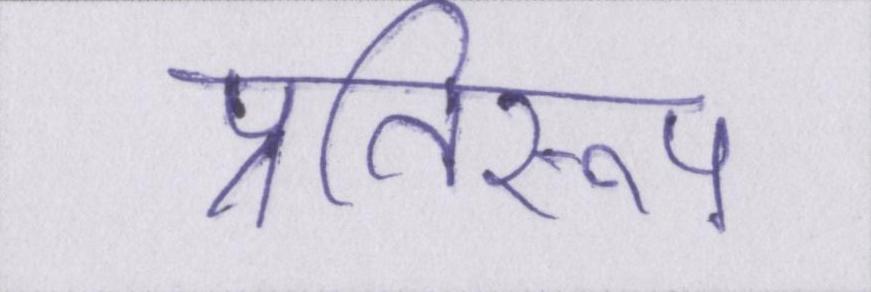 प्रतिरूप